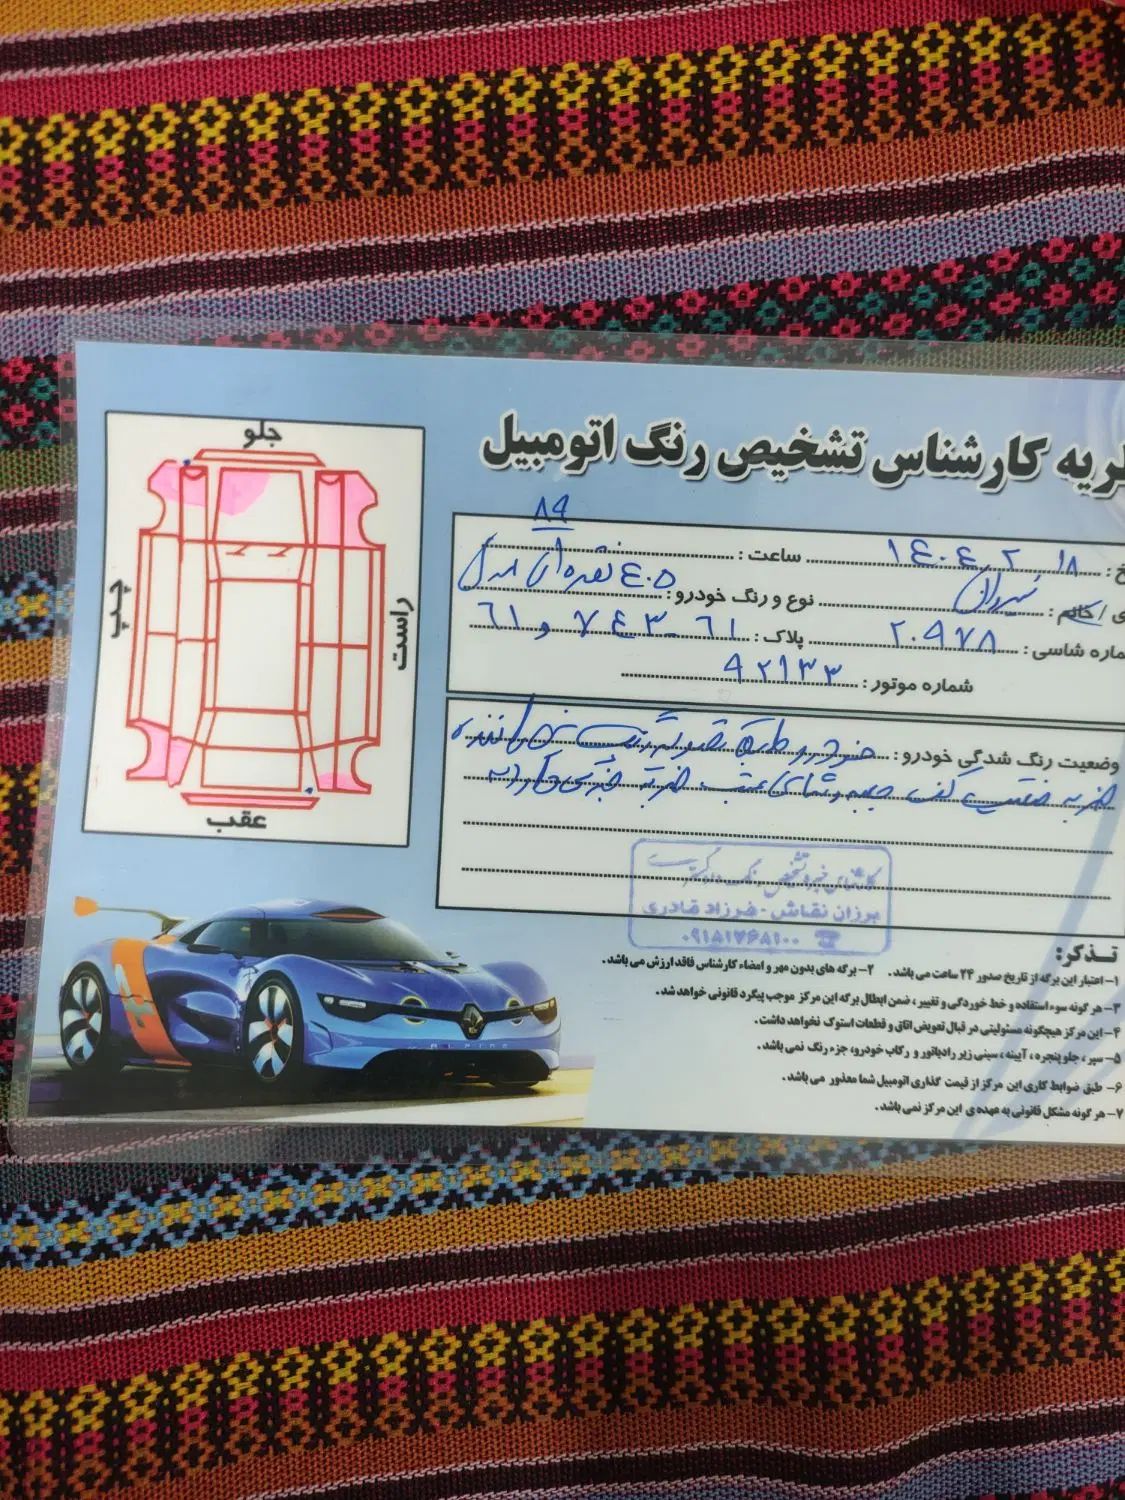 جلو
چپ
راست
عقب
کارشناس تشخیص رنگ اتومبیل
۱۴۰۴ ۲ ۱۸ ساعت :
۸۴
خانم : نوع و رنگ خودرو : ۴۰۵ نقره ای مدل
شاسی : ۲۰۹۷۸ پلاک : ۶۱ - ۷۴۳ و ۶۱
شماره موتور : ۹۲۱۳۳
وضعیت رنگ شدگی خودرو : خودرو طبق تصویر رنگ شده
ضربه کف جعبه عقب ضربه جزئی دارد
کارشناس تشخیص رنگ
مرزان نقاش - فرزاد قادری
۰۹۱۸۱۷۶۸۱۰۰
تذکر:
۱- اعتبار این برگه از تاریخ صدور ۲۴ ساعت می باشد. ۲- برگه های بدون مهر و امضاء کارشناس فاقد ارزش می باشد.
۳- هر گونه سوء استفاده و خط خوردگی و تغییر، ضمن ابطال برگه این مرکز موجب پیگرد قانونی خواهد شد.
۴- این مرکز هیچگونه مسئولیتی در قبال تعویض اتاق و قطعات استوک نخواهد داشت.
۵- سپر، جلو پنجره، آیینه، سینی زیر رادیاتور و رکاب خودرو، جزء رنگ نمی باشد.
۶- طبق ضوابط کاری این مرکز از قیمت گذاری اتومبیل شما معذور می باشد.
۷- هر گونه مشکل قانونی به عهده ی این مرکز نمی باشد.